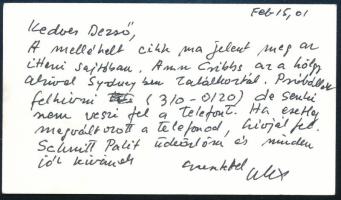 Feb 15, 01
Kedves Dezső,
A mellékelt cikk ma jelent meg az
itteni sajtóban. Ann Gribbs az a hölgy
akivel Sydneyben találkoztál. Próbállak
felhívni (310-0120) de senki
nem veszi fel a telefont. Ha esetleg
megváltozott a telefonod, hívjál fel.
Schmitt Palit üdvözlöm és minden
jót kívánok